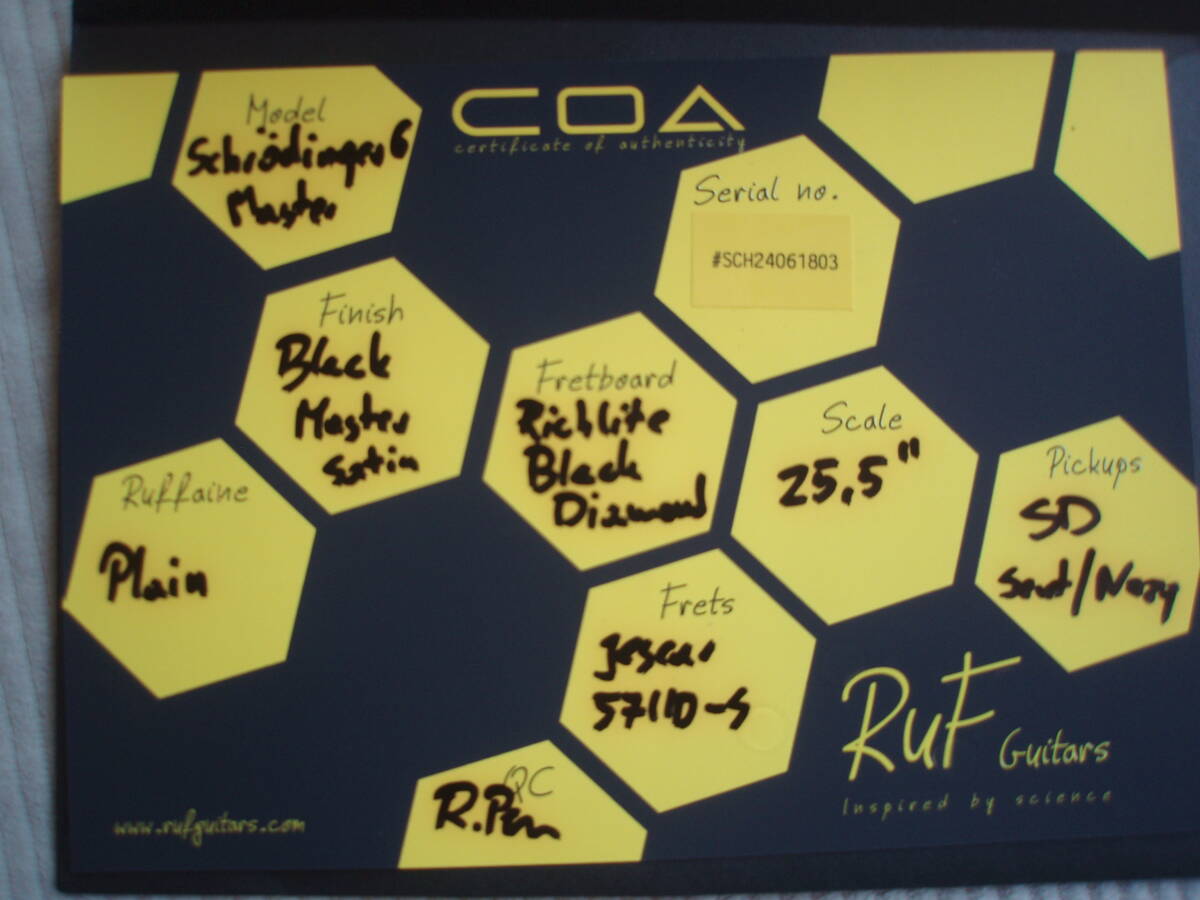 COA
certificate of authenticity
Model
Schrödinger 6
Master
Serial no.
#SCH24061803
Finish
Black
Master
Satin
Fretboard
Richlite
Black
Diamond
Scale
25,5"
Pickups
SD
Sent/Nazg
Ruffaine
Plain
Frets
Jescar
57110-S
QC
RuF Guitars
Inspired by science
www.rufguitars.com